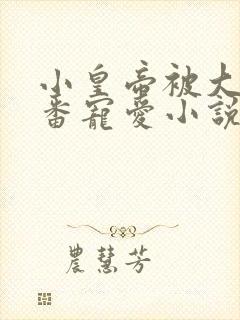 小皇帝被大
番寵愛小說
農慧芳